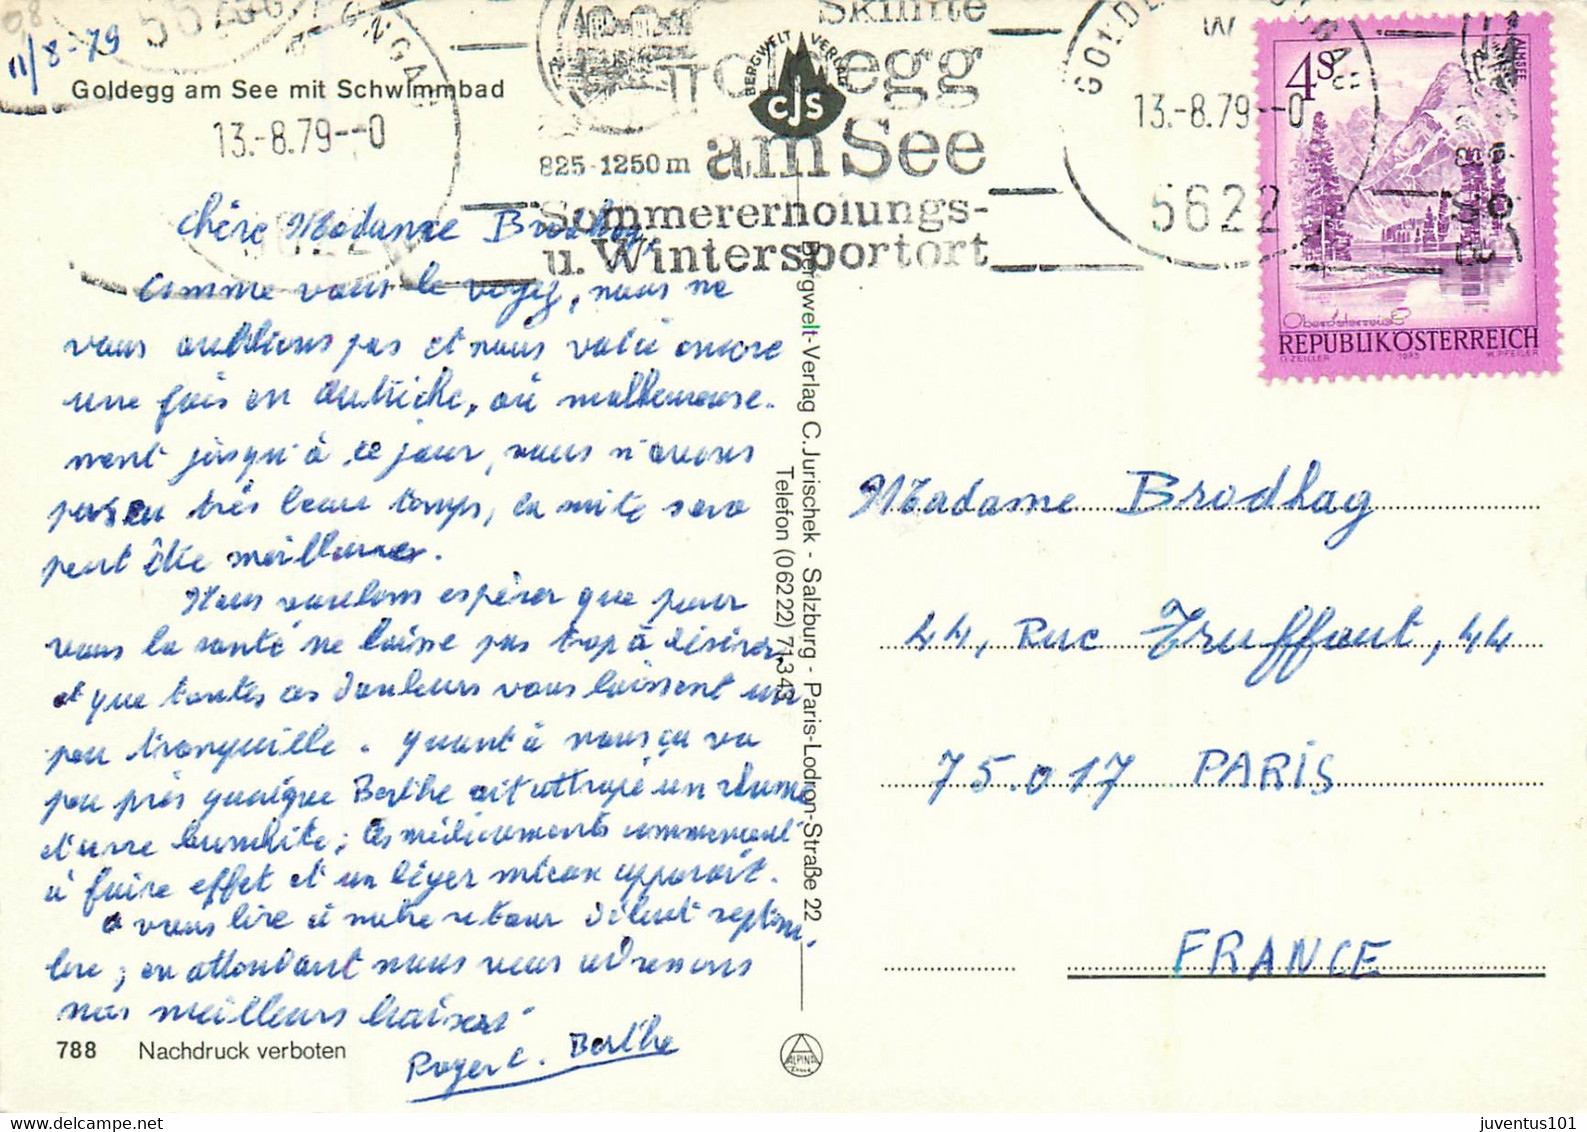 11/8-79
Goldegg am See mit Schwimmbad
BERGWELT VERLAG
CJS
13.-8.79--0
Skilifte
Goldegg
am See
825-1250 m
Sommererholungs-
u. Wintersportort
13.-8.79--0
5622
4 S
ALMSEE
Oberösterreich
REPUBLIK ÖSTERREICH
O. ZEILLER 1973 W. PFEILER
Chère Madame Brodhag,
Comme vous le voyez, nous ne
vous oublions pas et nous voici encore
une fois en Autriche, où malheureuse-
ment jusqu'à ce jour, nous n'avons
pas eu très beau temps, la suite sera
peut être meilleure.
Nous voulons espérer que pour
vous la santé ne laisse pas trop à désirer,
et que toutes ces douleurs vous laissent un
peu tranquille. Quant à nous ça va
peu près quoique Berthe ait attrapé un rhume
et une bronchite; les médicaments commencent
à faire effet et un léger mieux apparait.
A vous lire à notre retour début septem-
bre; en attendant nous vous adressons
nos meilleurs baisers
Roger et Berthe
788 Nachdruck verboten
Bergwelt-Verlag C. Jurischek - Salzburg - Paris-Lodron-Straße 22
Telefon (0 62 22) 71 3 43
ALPINA
Madame Brodhag
44, Rue Truffaut, 44
75.017 PARIS
FRANCE
juventus101